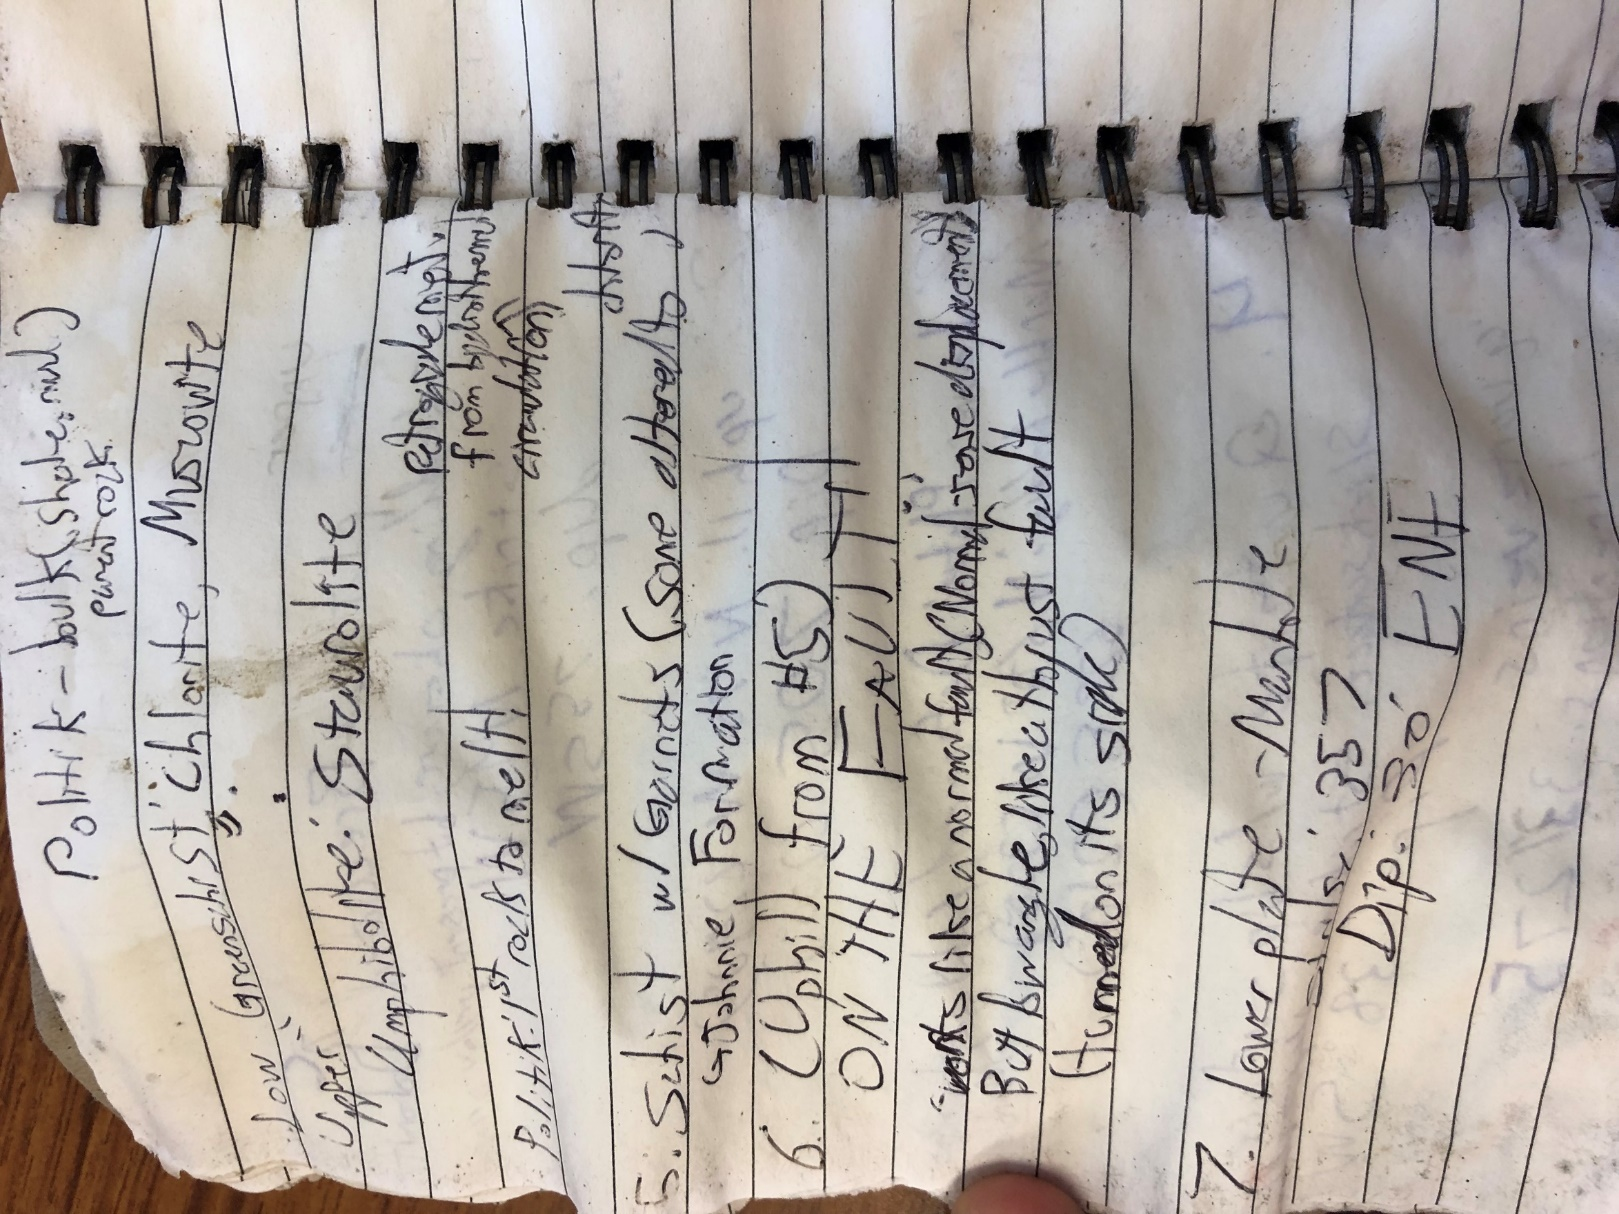 Politik - bulk (shale, mud)
parent rock
Low Greenschist: Chlorite, Muscovite
Upper Amphibolite: Staurolite
Politik: 1st rock to melt!
from hydrothermal
circulation)
5. Schist w/ Garnets (some altered to
↳ Johnnie Formation
6. (Uphill from #5)
ON THE FAULT!
"works like a normal fault (Normal-sense displacement)
But low angle, like a thrust fault
(turned on its side)
7. Lower plate - Marble
357
Dip: 30° ENE